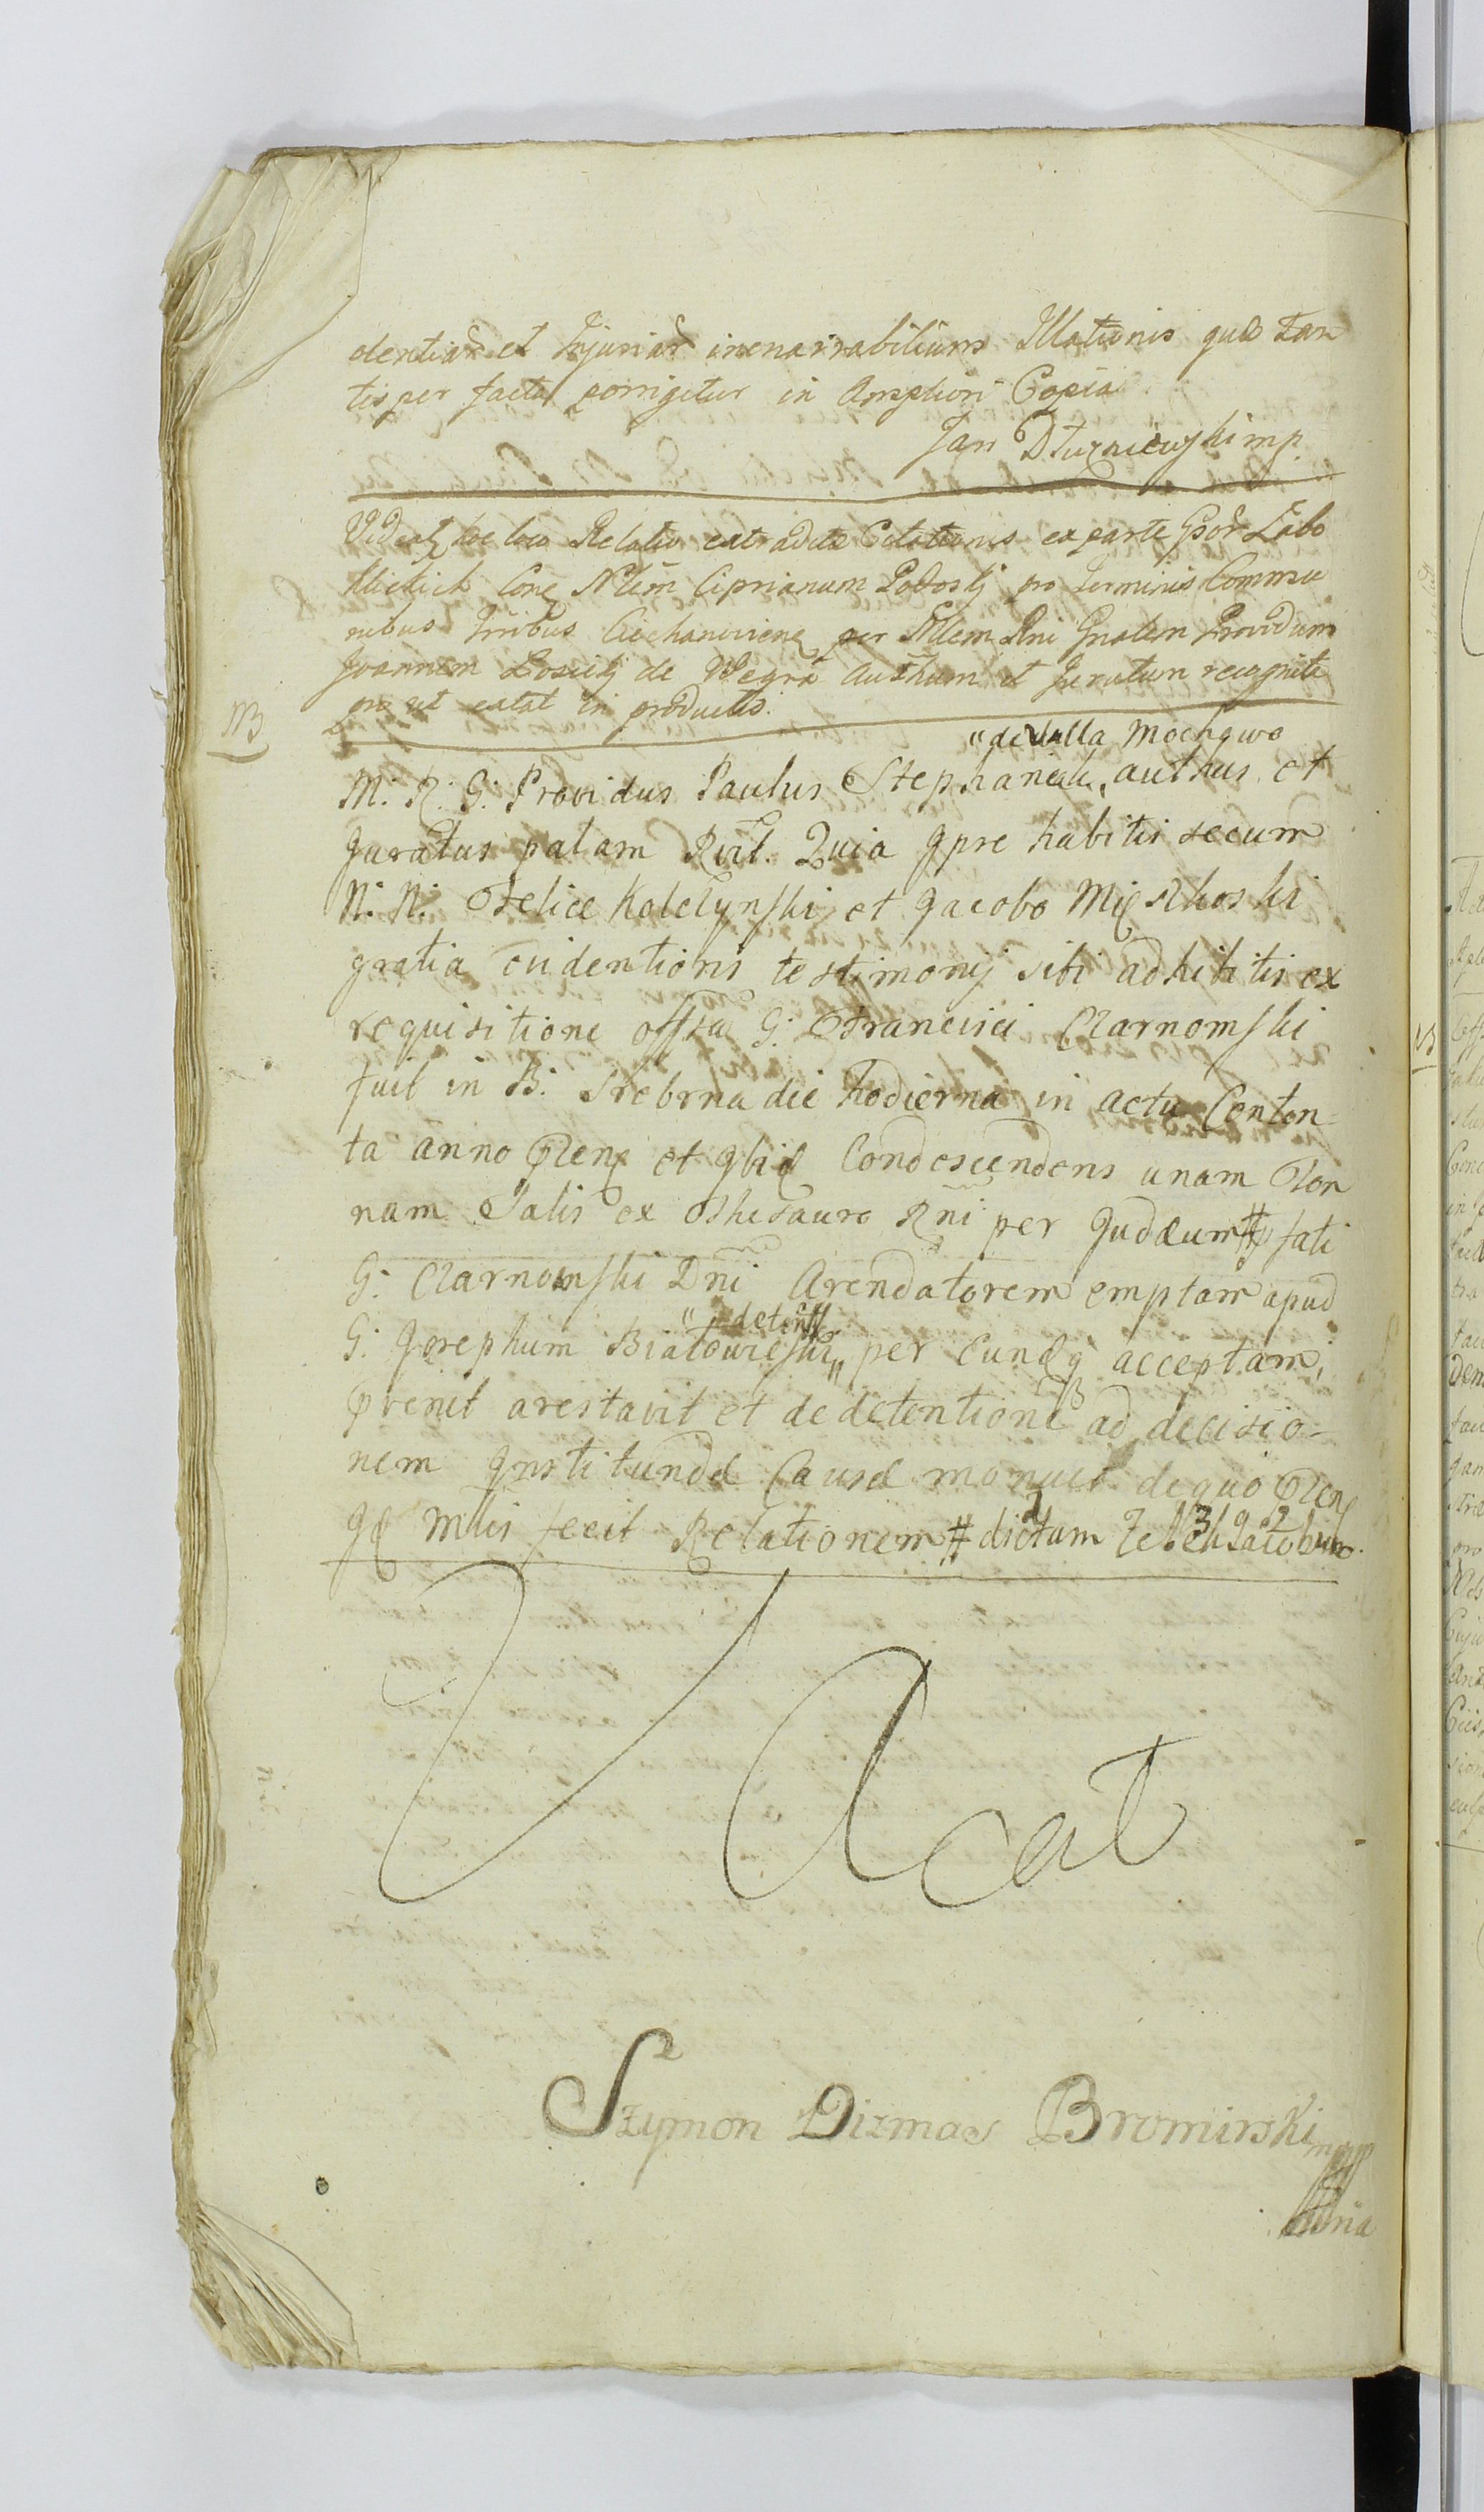 dentiar et Injuriar inenarrabilium Illationis quæ tan
tisper facta porrigetur in Ampliori Copia
Jan Dłuzniewski mp
Videat hoc loco Relatio extraditæ Citationis ex parte Gsor Łabo
Cone Nlem Ciprianum Podoskj pro terminis Commu
nibus Tribus Ciechanoviens per Mlem Rni Gnalem Providum
Joannem de Węgra Authum et Juratum recognita
pro ut extat in productis.
NB
"de villa Mochowo
M: R: G: Providus Paulus Stephaniak, authus et
Juratus palam Rvit. Quia Jpse habitis secum
N: N: Felice Kolczynski et Jacobo
gratia evidentioris testimonij sibi adhibitis ex
requisitione offsa G: Francisci Czarnomski
fuit in B: Srebrna die hodierna in actu Conten-
ta anno Præns et Ibid Condescendens unam Ton
nam Salis ex Thesauro Rni per Judæum # fati
G: Czarnomski Dni Arendatorem emptam apud
"detent
G: Josephum Białowieski " per eundq acceptam,
pvenit arestavit et de detentione ad decisio-
nem Jnstitundæ Causæ monuit de quo Præns
Jd Mlis fecit Relationem # dictam Jacobum
Vacat
Szymon Dizmas Bromirski mpp